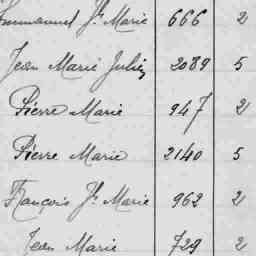 Emmanuel Jh Marie 666 2
Jean Marie Julien 2089 5
Pierre Marie 947 2
Pierre Marie 2140 5
François Jh Marie 962 2
Jean Marie 729 2